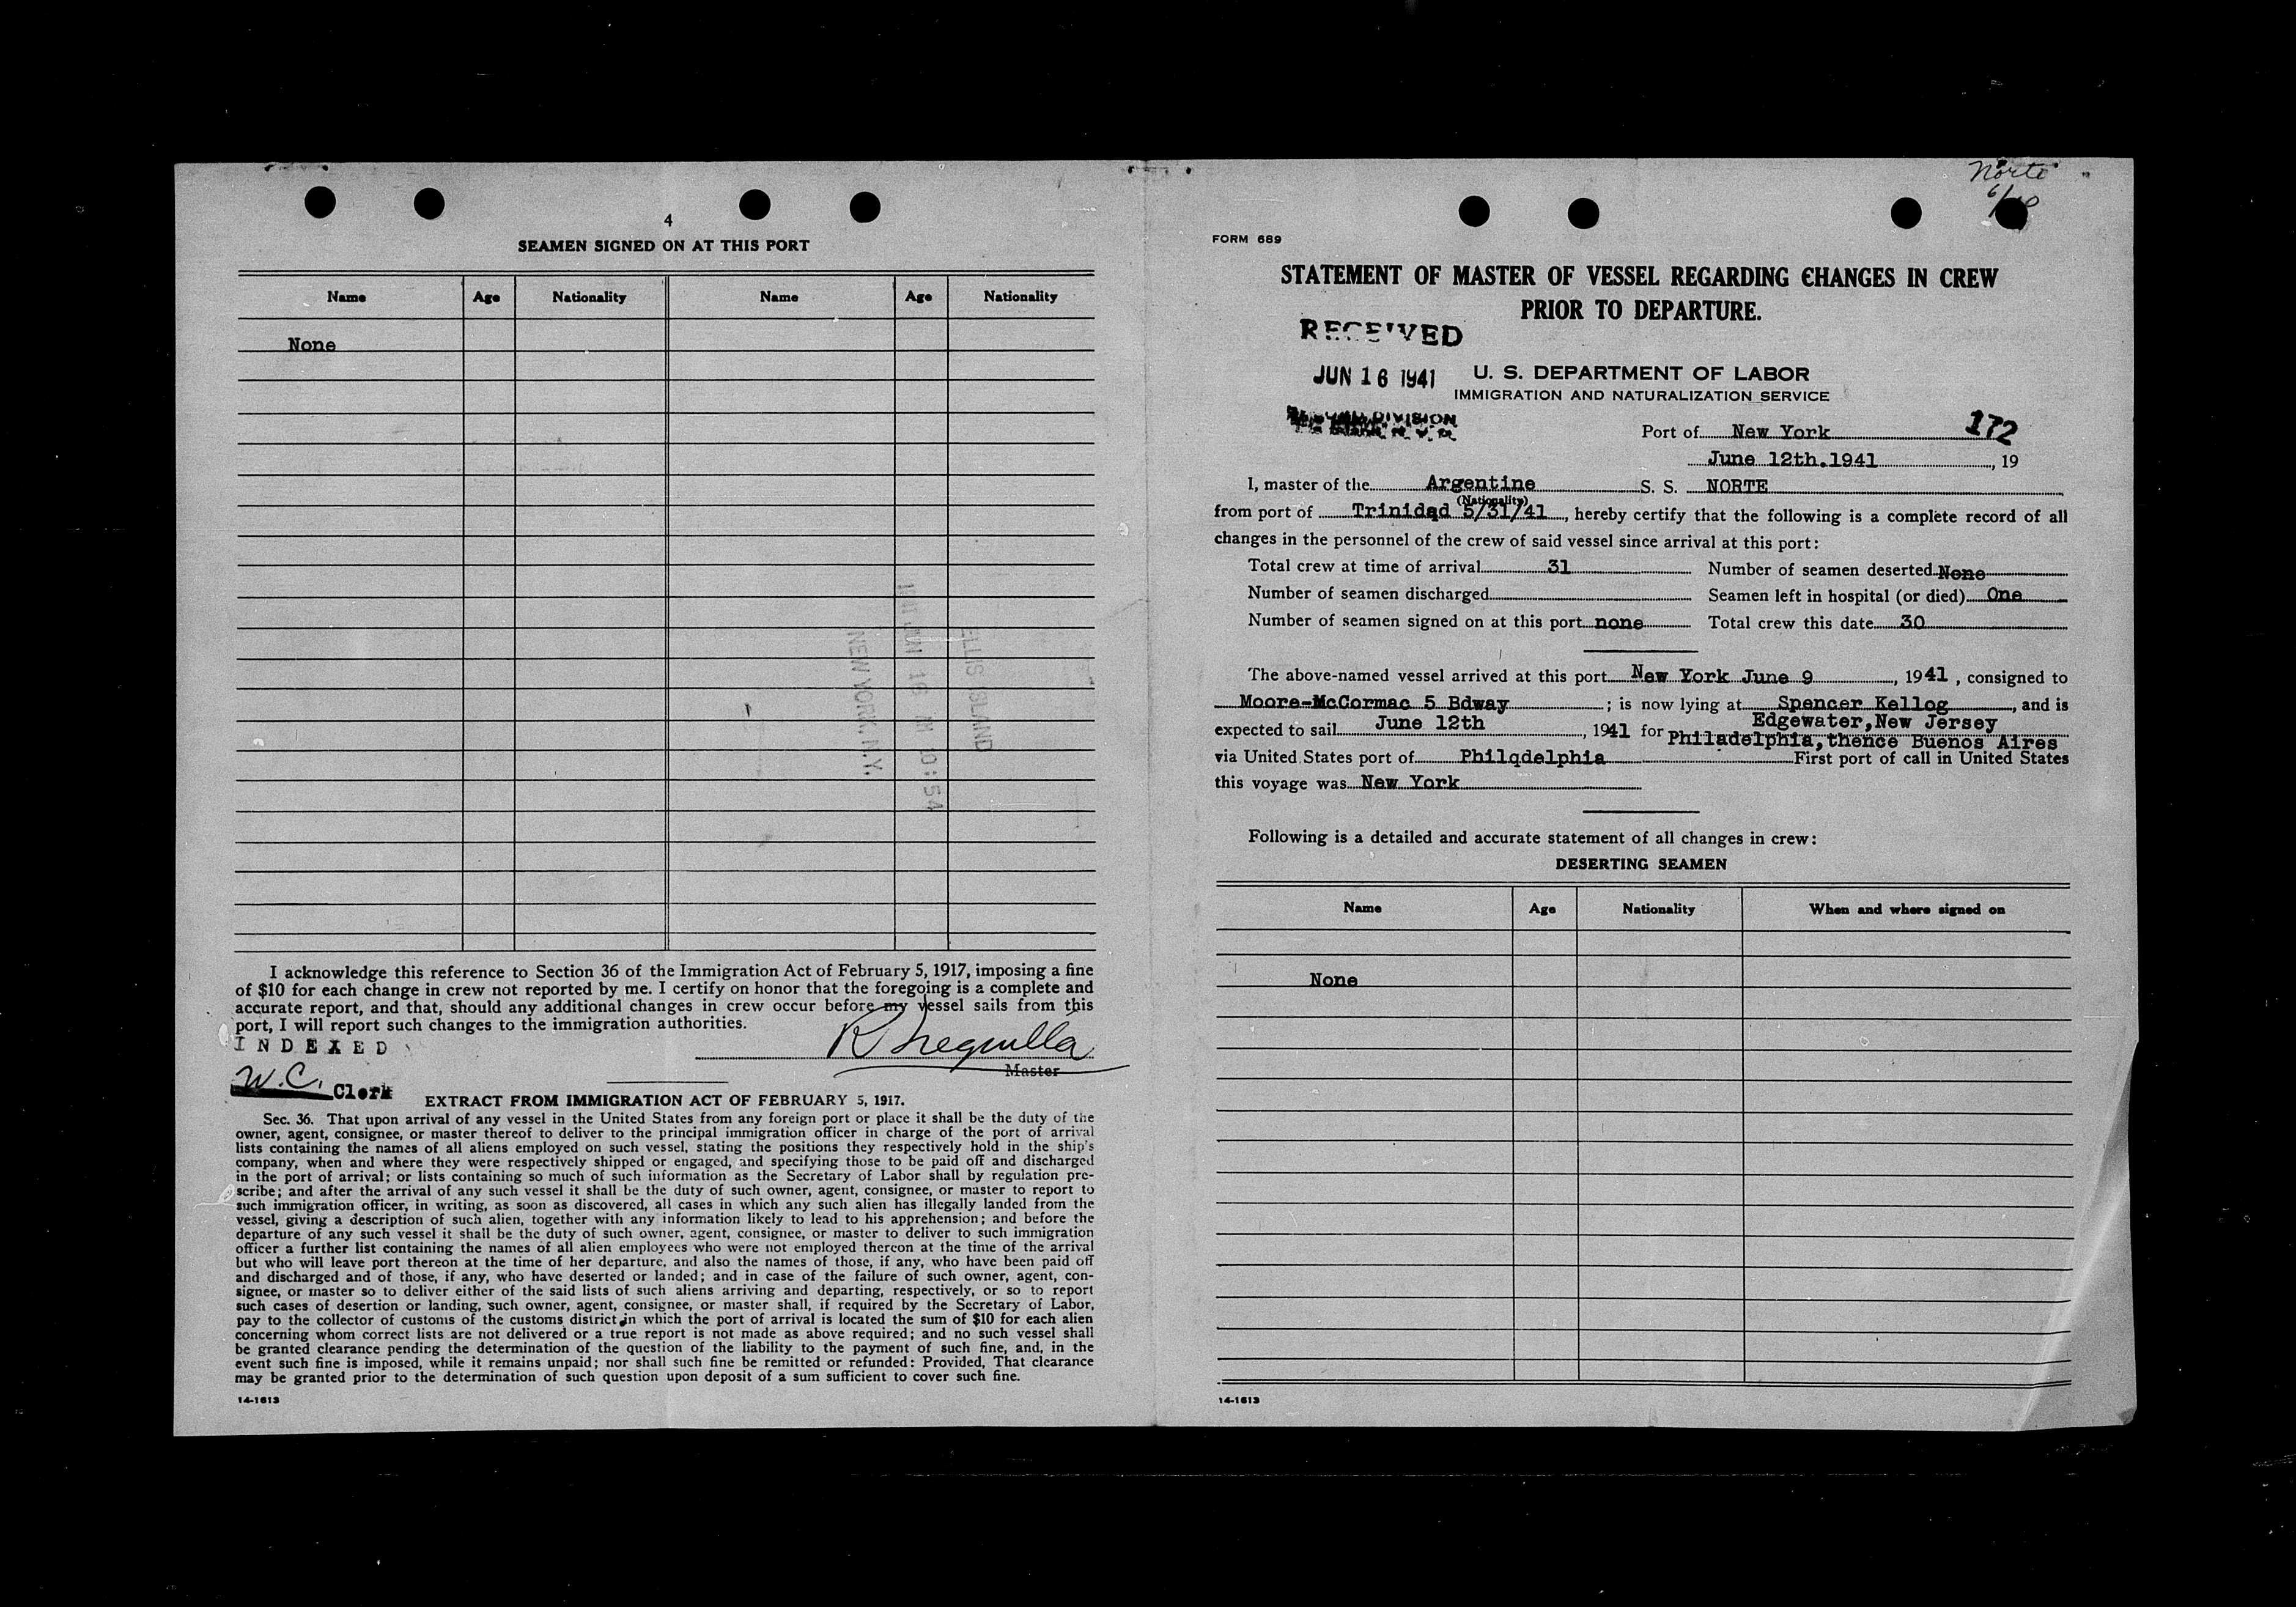 4
SEAMEN SIGNED ON AT THIS PORT
Name Age Nationality Name Age Nationality
None
ELLIS ISLAND
16 10:54
NEW YORK, N.Y.
I acknowledge this reference to Section 36 of the Immigration Act of February 5, 1917, imposing a fine
of $10 for each change in crew not reported by me. I certify on honor that the foregoing is a complete and
accurate report, and that, should any additional changes in crew occur before my vessel sails from this
port, I will report such changes to the immigration authorities.
INDEXED
Master
W.C. Clerk
EXTRACT FROM IMMIGRATION ACT OF FEBRUARY 5, 1917.
Sec. 36. That upon arrival of any vessel in the United States from any foreign port or place it shall be the duty of the
owner, agent, consignee, or master thereof to deliver to the principal immigration officer in charge of the port of arrival
lists containing the names of all aliens employed on such vessel, stating the positions they respectively hold in the ship's
company, when and where they were respectively shipped or engaged, and specifying those to be paid off and discharged
in the port of arrival; or lists containing so much of such information as the Secretary of Labor shall by regulation pre-
scribe; and after the arrival of any such vessel it shall be the duty of such owner, agent, consignee, or master to report to
such immigration officer, in writing, as soon as discovered, all cases in which any such alien has illegally landed from the
vessel, giving a description of such alien, together with any information likely to lead to his apprehension; and before the
departure of any such vessel it shall be the duty of such owner, agent, consignee, or master to deliver to such immigration
officer a further list containing the names of all alien employees who were not employed thereon at the time of the arrival
but who will leave port thereon at the time of her departure, and also the names of those, if any, who have been paid off
and discharged and of those, if any, who have deserted or landed; and in case of the failure of such owner, agent, con-
signee, or master so to deliver either of the said lists of such aliens arriving and departing, respectively, or so to report
such cases of desertion or landing, such owner, agent, consignee, or master shall, if required by the Secretary of Labor,
pay to the collector of customs of the customs district in which the port of arrival is located the sum of $10 for each alien
concerning whom correct lists are not delivered or a true report is not made as above required; and no such vessel shall
be granted clearance pending the determination of the question of the liability to the payment of such fine, and, in the
event such fine is imposed, while it remains unpaid; nor shall such fine be remitted or refunded: Provided, That clearance
may be granted prior to the determination of such question upon deposit of a sum sufficient to cover such fine.
14-1613
Norte
6/10
FORM 689
STATEMENT OF MASTER OF VESSEL REGARDING CHANGES IN CREW
PRIOR TO DEPARTURE.
RECEIVED
JUN 16 1941
DIVISION
U. S. DEPARTMENT OF LABOR
IMMIGRATION AND NATURALIZATION SERVICE
Port of New York 172
June 12th.1941, 19
I, master of the Argentine S. S. NORTE
(Nationality)
from port of Trinidad 5/31/41, hereby certify that the following is a complete record of all
changes in the personnel of the crew of said vessel since arrival at this port:
Total crew at time of arrival 31 Number of seamen deserted None
Number of seamen discharged Seamen left in hospital (or died) One
Number of seamen signed on at this port none Total crew this date 30
The above-named vessel arrived at this port New York June 9, 1941, consigned to
Moore-McCormac 5 Bdway; is now lying at Spencer Kellog, and is
Edgewater,New Jersey
expected to sail June 12th, 1941 for Philadelphia,thence Buenos Aires
via United States port of Philqdelphia First port of call in United States
this voyage was New York
Following is a detailed and accurate statement of all changes in crew:
DESERTING SEAMEN
Name Age Nationality When and where signed on
None
14-1613